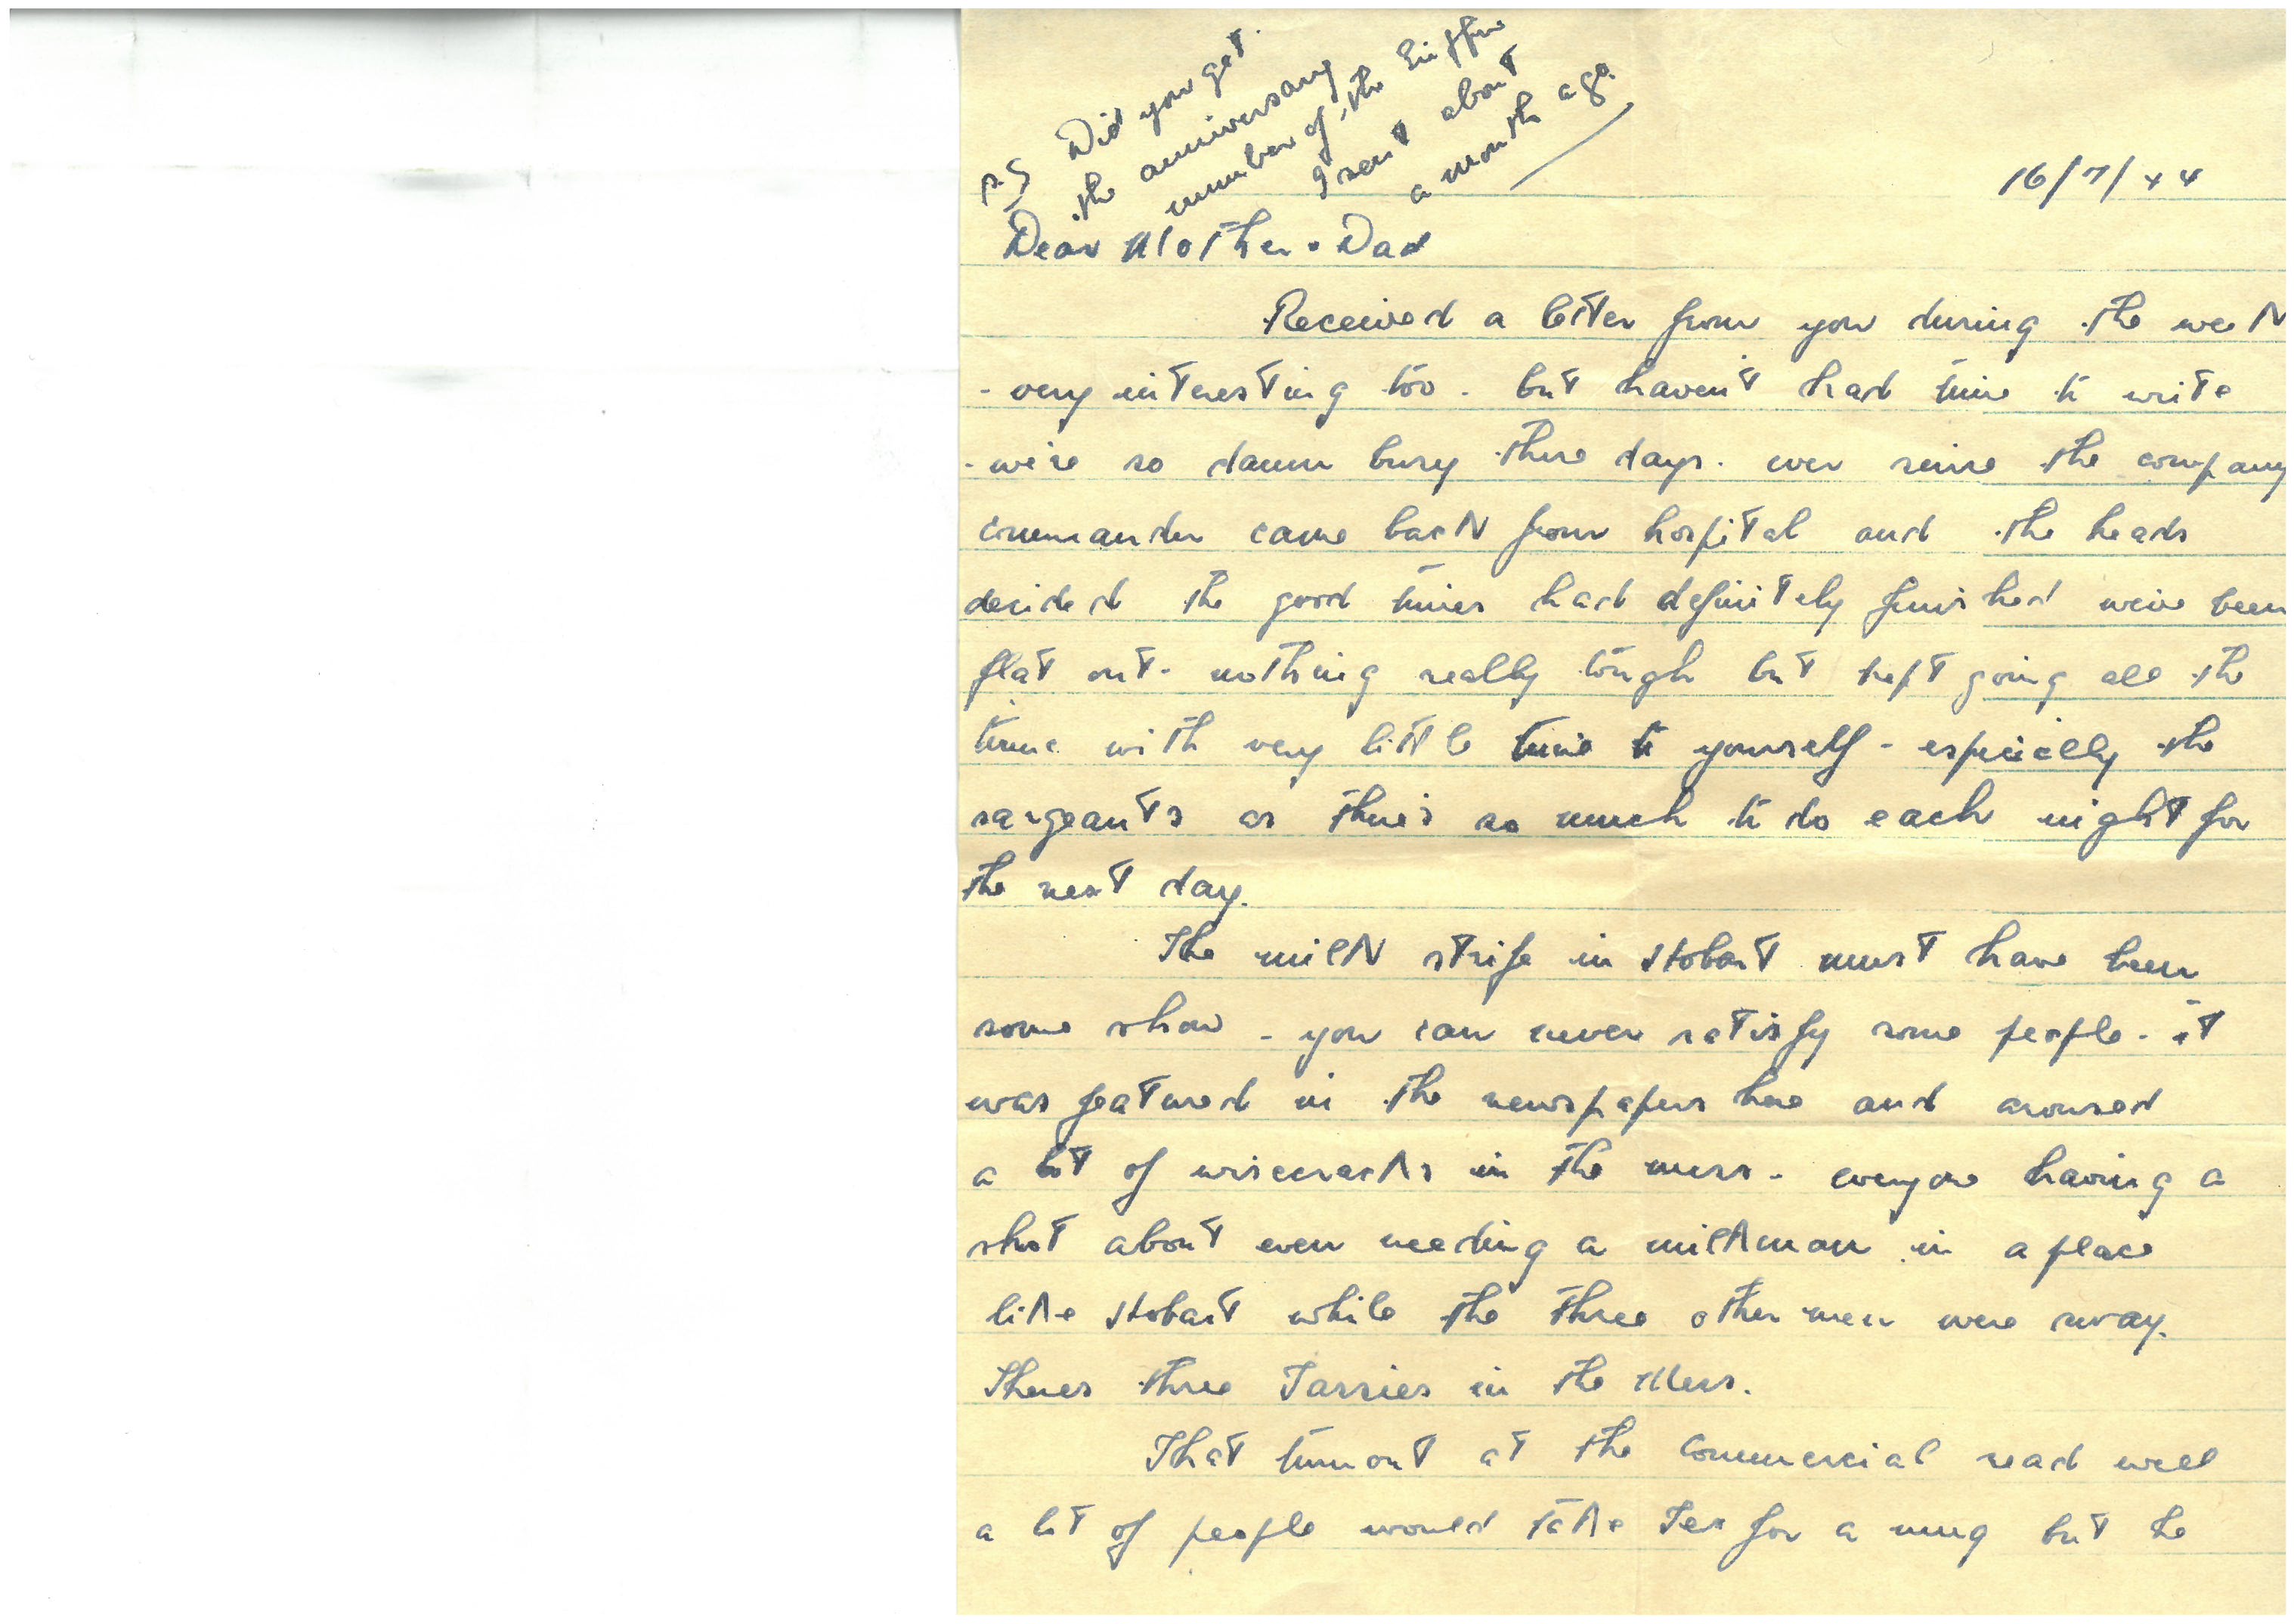 P.S Did you get
the anniversary
number of the Griffin
I sent about
a month ago.
16/7/44
Dear Mother & Dad
Received a letter from you during the week
- very interesting too - but haven't had time to write
- we're so damn busy these days. ever since the company
commander came back from hospital and the heads
decided the good times had definitely finished we've been
flat out - nothing really tough but kept going all the
time with very little time to yourself - especially the
sargeants as there's so much to do each night for
the next day.
The milk strife in Hobart must have been
some show - you can never satisfy some people - it
was featured in the newspapers here and aroused
a lot of wisecracks in the mess - everyone having a
shot about even needing a milkman in a place
like Hobart while the three other men were away.
Theres three Tassies in the Mess.
That turnout at the Commercial read well
a lot of people would take Tex for a mug but he